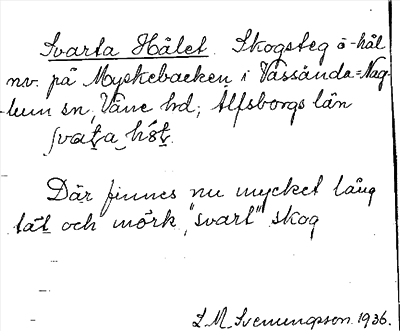 Svarta Hålet. Skogsteg o -hål
nv. på Myskebacken i Vassända=Nag-
lum sn, Väne hd; Älfsborgs län
Där finnes nu mycket lång
tät och mörk, "svart" skog
L. M. Svenungsson. 1936.